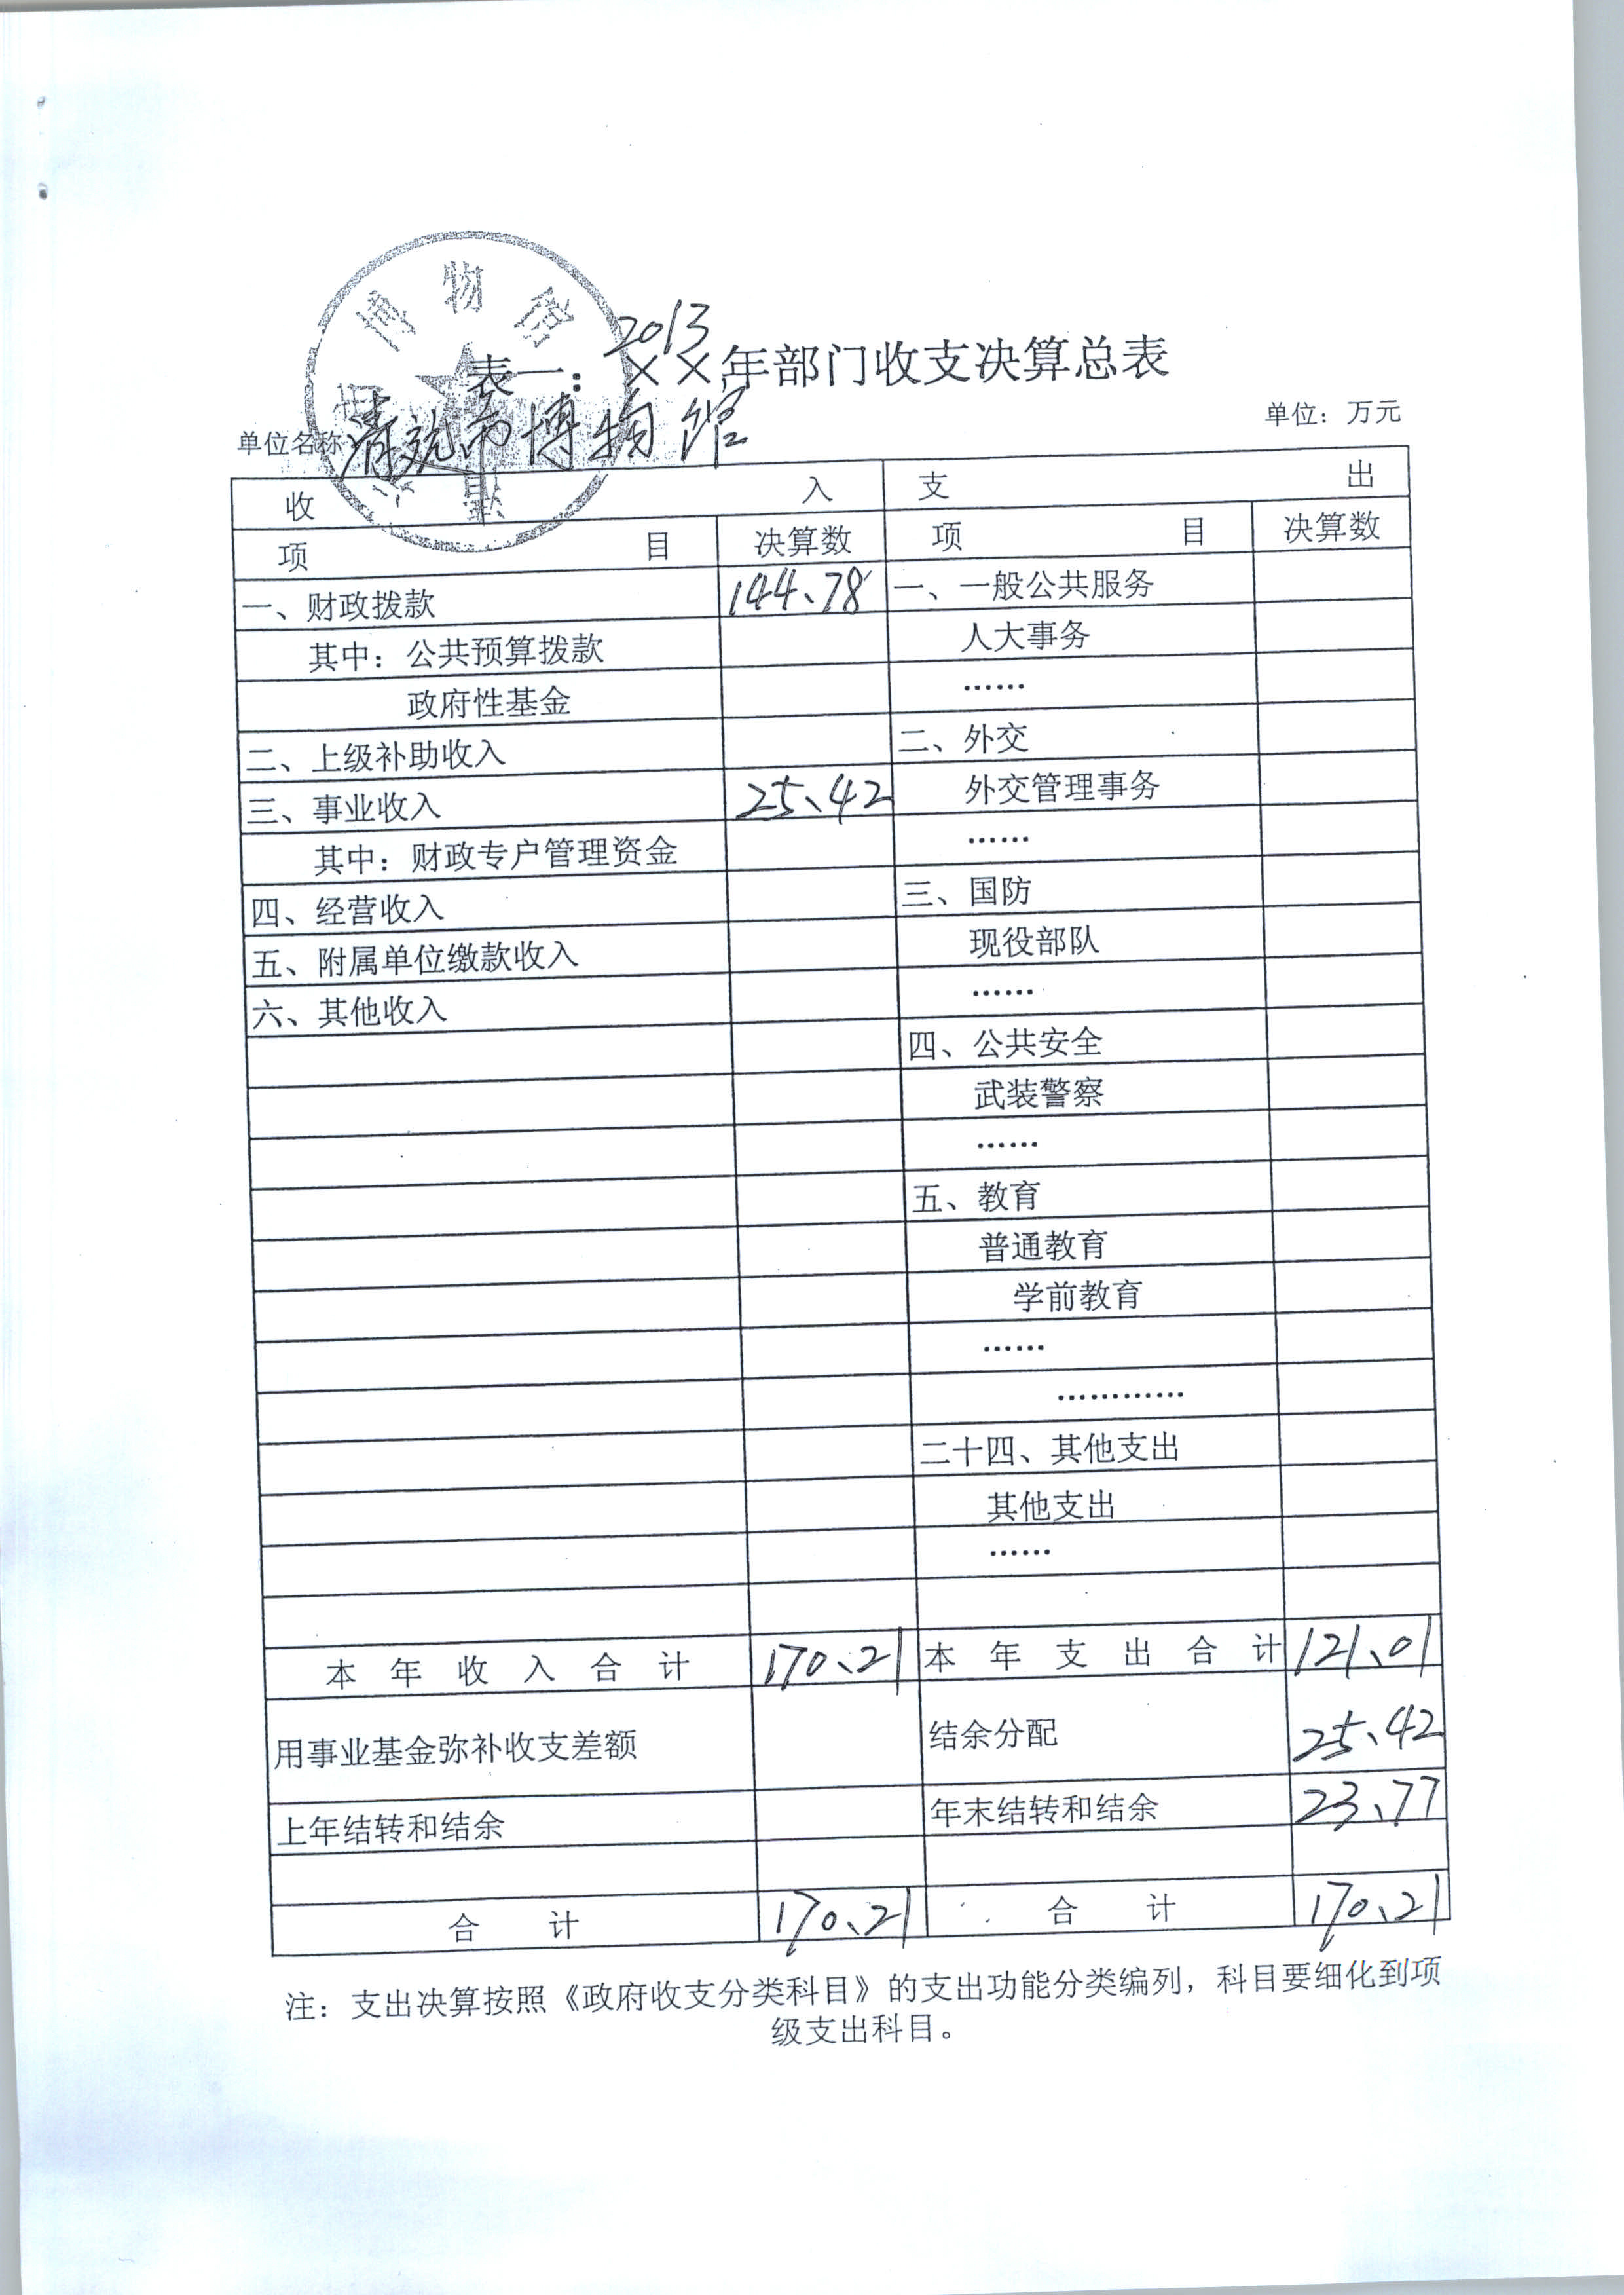 博物馆
2013
表一：××年部门收支决算总表
单位名称 清远市博物馆 单位：万元
收 入 支 出
项 目 决算数 项 目 决算数
一、财政拨款 144.78 一、一般公共服务
其中：公共预算拨款 人大事务
政府性基金 ……
二、上级补助收入 二、外交
三、事业收入 25.42 外交管理事务
其中：财政专户管理资金 ……
四、经营收入 三、国防
五、附属单位缴款收入 现役部队
六、其他收入 ……
四、公共安全
武装警察
……
五、教育
普通教育
学前教育
……
…………
二十四、其他支出
其他支出
……
本年收入合计 170.21 本年支出合计 121.01
用事业基金弥补收支差额 结余分配 25.42
上年结转和结余 年末结转和结余 23.77
合 计 170.21 合 计 170.21
注：支出决算按照《政府收支分类科目》的支出功能分类编列，科目要细化到项
级支出科目。